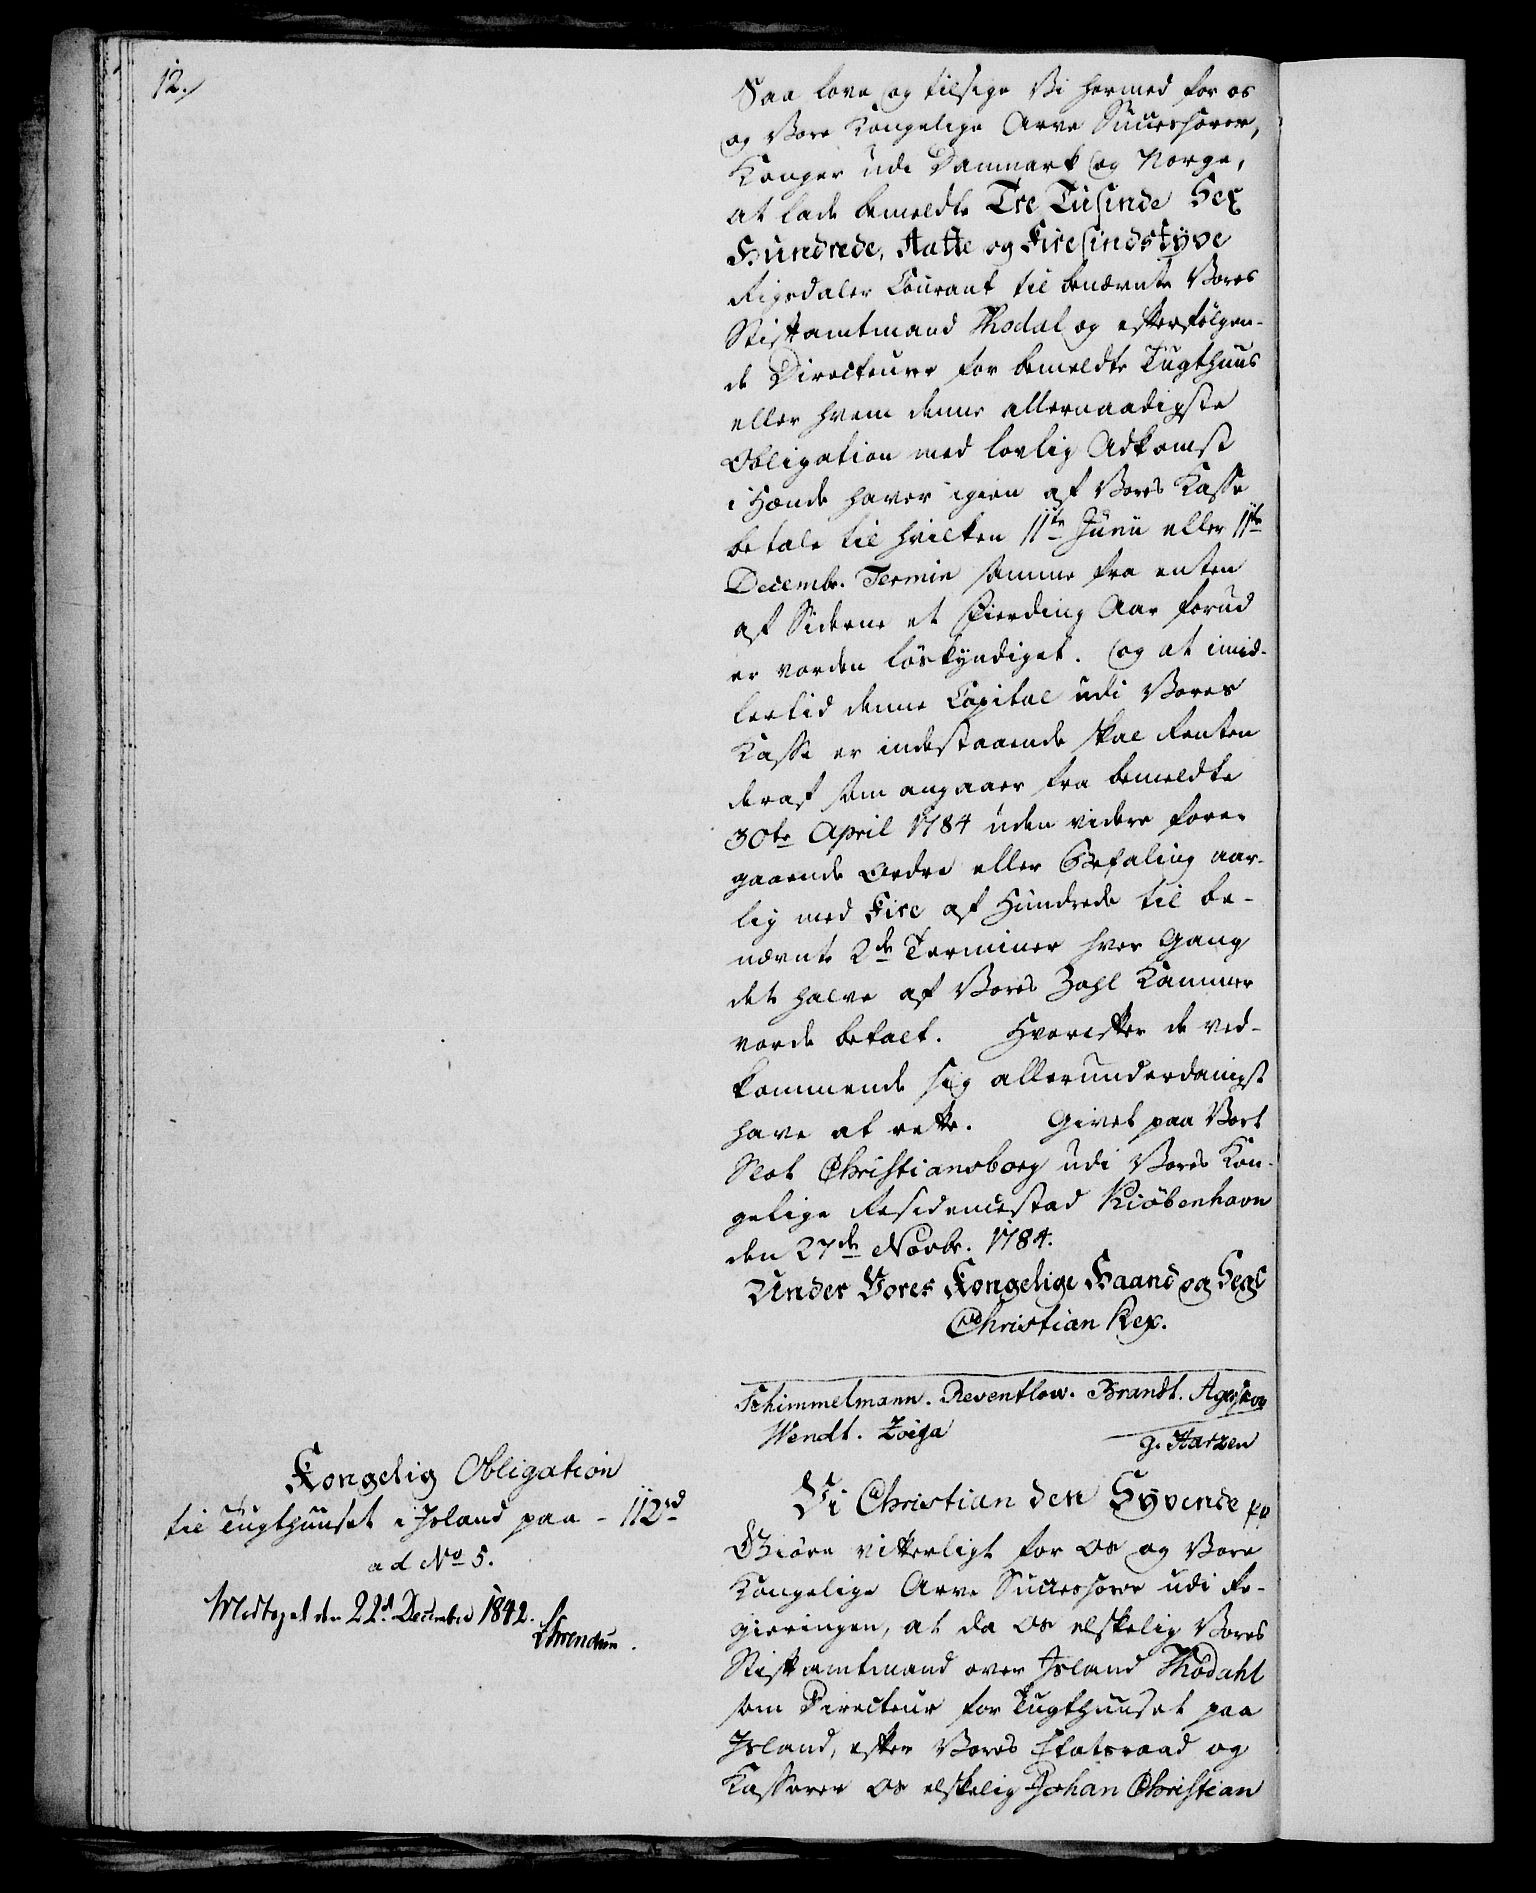 12./
Saa love og tilsige Vi hermed for os
og Vore Kongelige Arve Successorer,
Konger udi Danmark og Norge,
at lade bemeldte Tre Tusinde Sex
Hundrede, Aatte og Firesindstyve
Rigsdaler Courant til benævnte Vores
Stiftamtmand Thodal og efterfølgen-
de Directeurer for bemeldte Tugthuus
eller hvem denne allernaadigste
Obligation med lovlig Adkomst
i Hænde haver igien af Vores Kasse
betale til hvilken 11te Junii eller 11te
Decembr. Termin samme fra enten
af Siderne et Fierding Aar forud
er vorden løskyndiget. Og at imid-
lertid denne Capital udi Vores
Kasse er indestaaende skal Renten
deraf som angaaer fra bemeldte
30te April 1784 uden videre fore-
gaaende Ordre eller Befaling aar-
lig med Fire af Hundrede til be-
nævnte 2de Terminer hver Gang
det halve af Vores Zahl Kammer
vorde betalt. Hvorefter de ved-
kommende sig allerunderdanigst
have at rette. Givet paa Vort
Slot Christiansborg udi Vores Kon-
gelige Residencestad Kiöbenhavn
den 27de Novbr. 1784.
Under Vores Kongelige Haand og Segl
Christian Rex.
Schimmelmann. Reventlow. Brandt. Ageskov
Wendt. Zoëga
g. Harzen
Kongelig Obligation
til Tugthuuset i Island paa - 112rd
ad No 5.
Modtaget den 22d December 1842.
Vi Christian den Syvende pp
Giøre vitterligt for Os og Vore
Kongelige Arve Successorer udi Re-
gieringen, at da Os elskelig Vores
Stiftamtmand over Island Thodahl
som Directeur for Tugthuuset paa
Island, efter Vores Etatsraad og
Kasserer Os elskelig Johan Christian